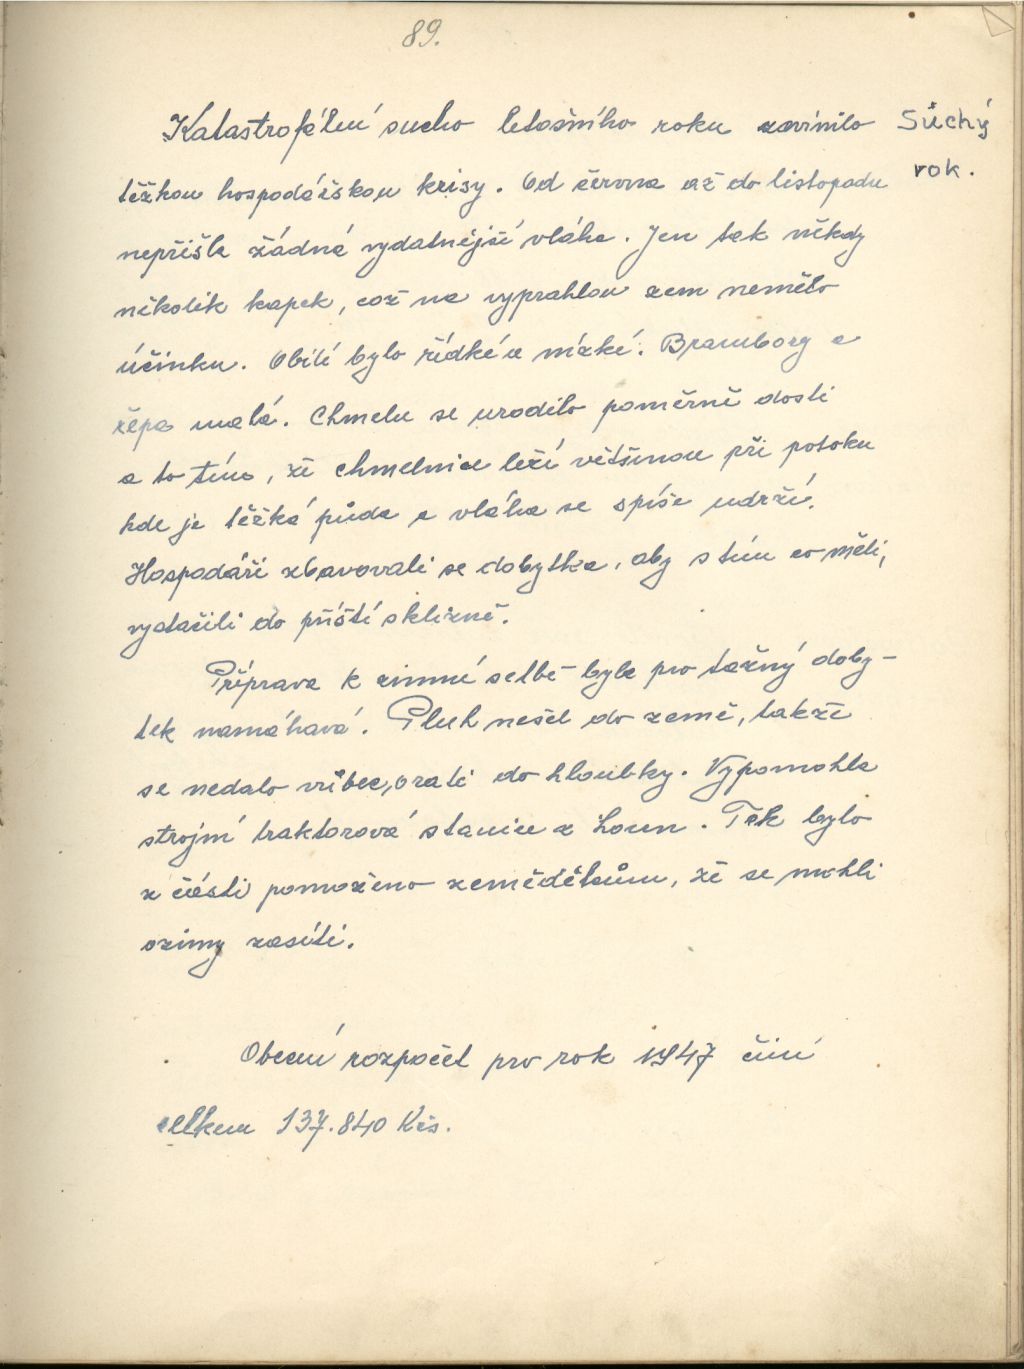 89.
Katastrofální sucho letošního roku zavinilo
Suchý
těžkou hospodářskou krisy. Od června až do listopadu
rok.
nepřišla žádná vydatnější vláha. Jen tak někdy
několik kapek, což na vyprahlou zem nemělo
účinku. Obilí bylo řídké a nízké. Brambory a
řépa malá. Chmelu se urodilo poměrně dosti
a to tím, že chmelnice leží většinou při potoku
kde je těžká půda a vláha se spíše udrží.
Hospodáři zbavovali se dobytka, aby s tím co měli,
vystačili do příští sklizně.
Příprava k zimní setbě byla pro tažný doby-
tek namáhavá. Pluh nešel do země, takže
se nedalo vůbec, orati do hloubky. Vypomohla
strojní traktorová stanice z Loun. Tak bylo
z části pomoženo zemědělcům, že se mohli
ozimy zasíti.
Obecní rozpočet pro rok 1947 činí
celkem 137.840 Kčs.